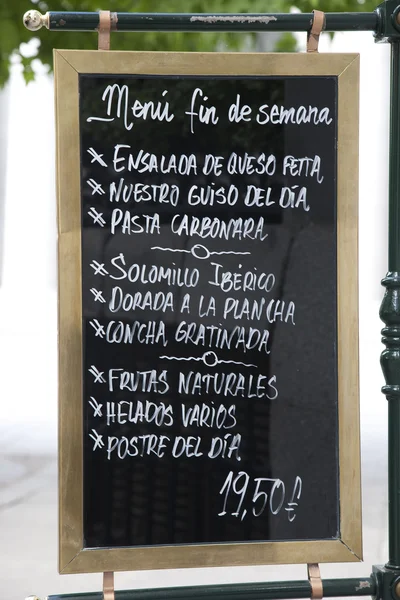 Menú fin de semana
* ENSALADA DE QUESO FETTA
* NUESTRO GUISO DEL DÍA
* PASTA CARBONARA
* SOLOMILLO IBÉRICO
* DORADA A LA PLANCHA
* CONCHA GRATINADA
* FRUTAS NATURALES
* HELADOS VARIOS
* POSTRE DEL DÍA
19,50€